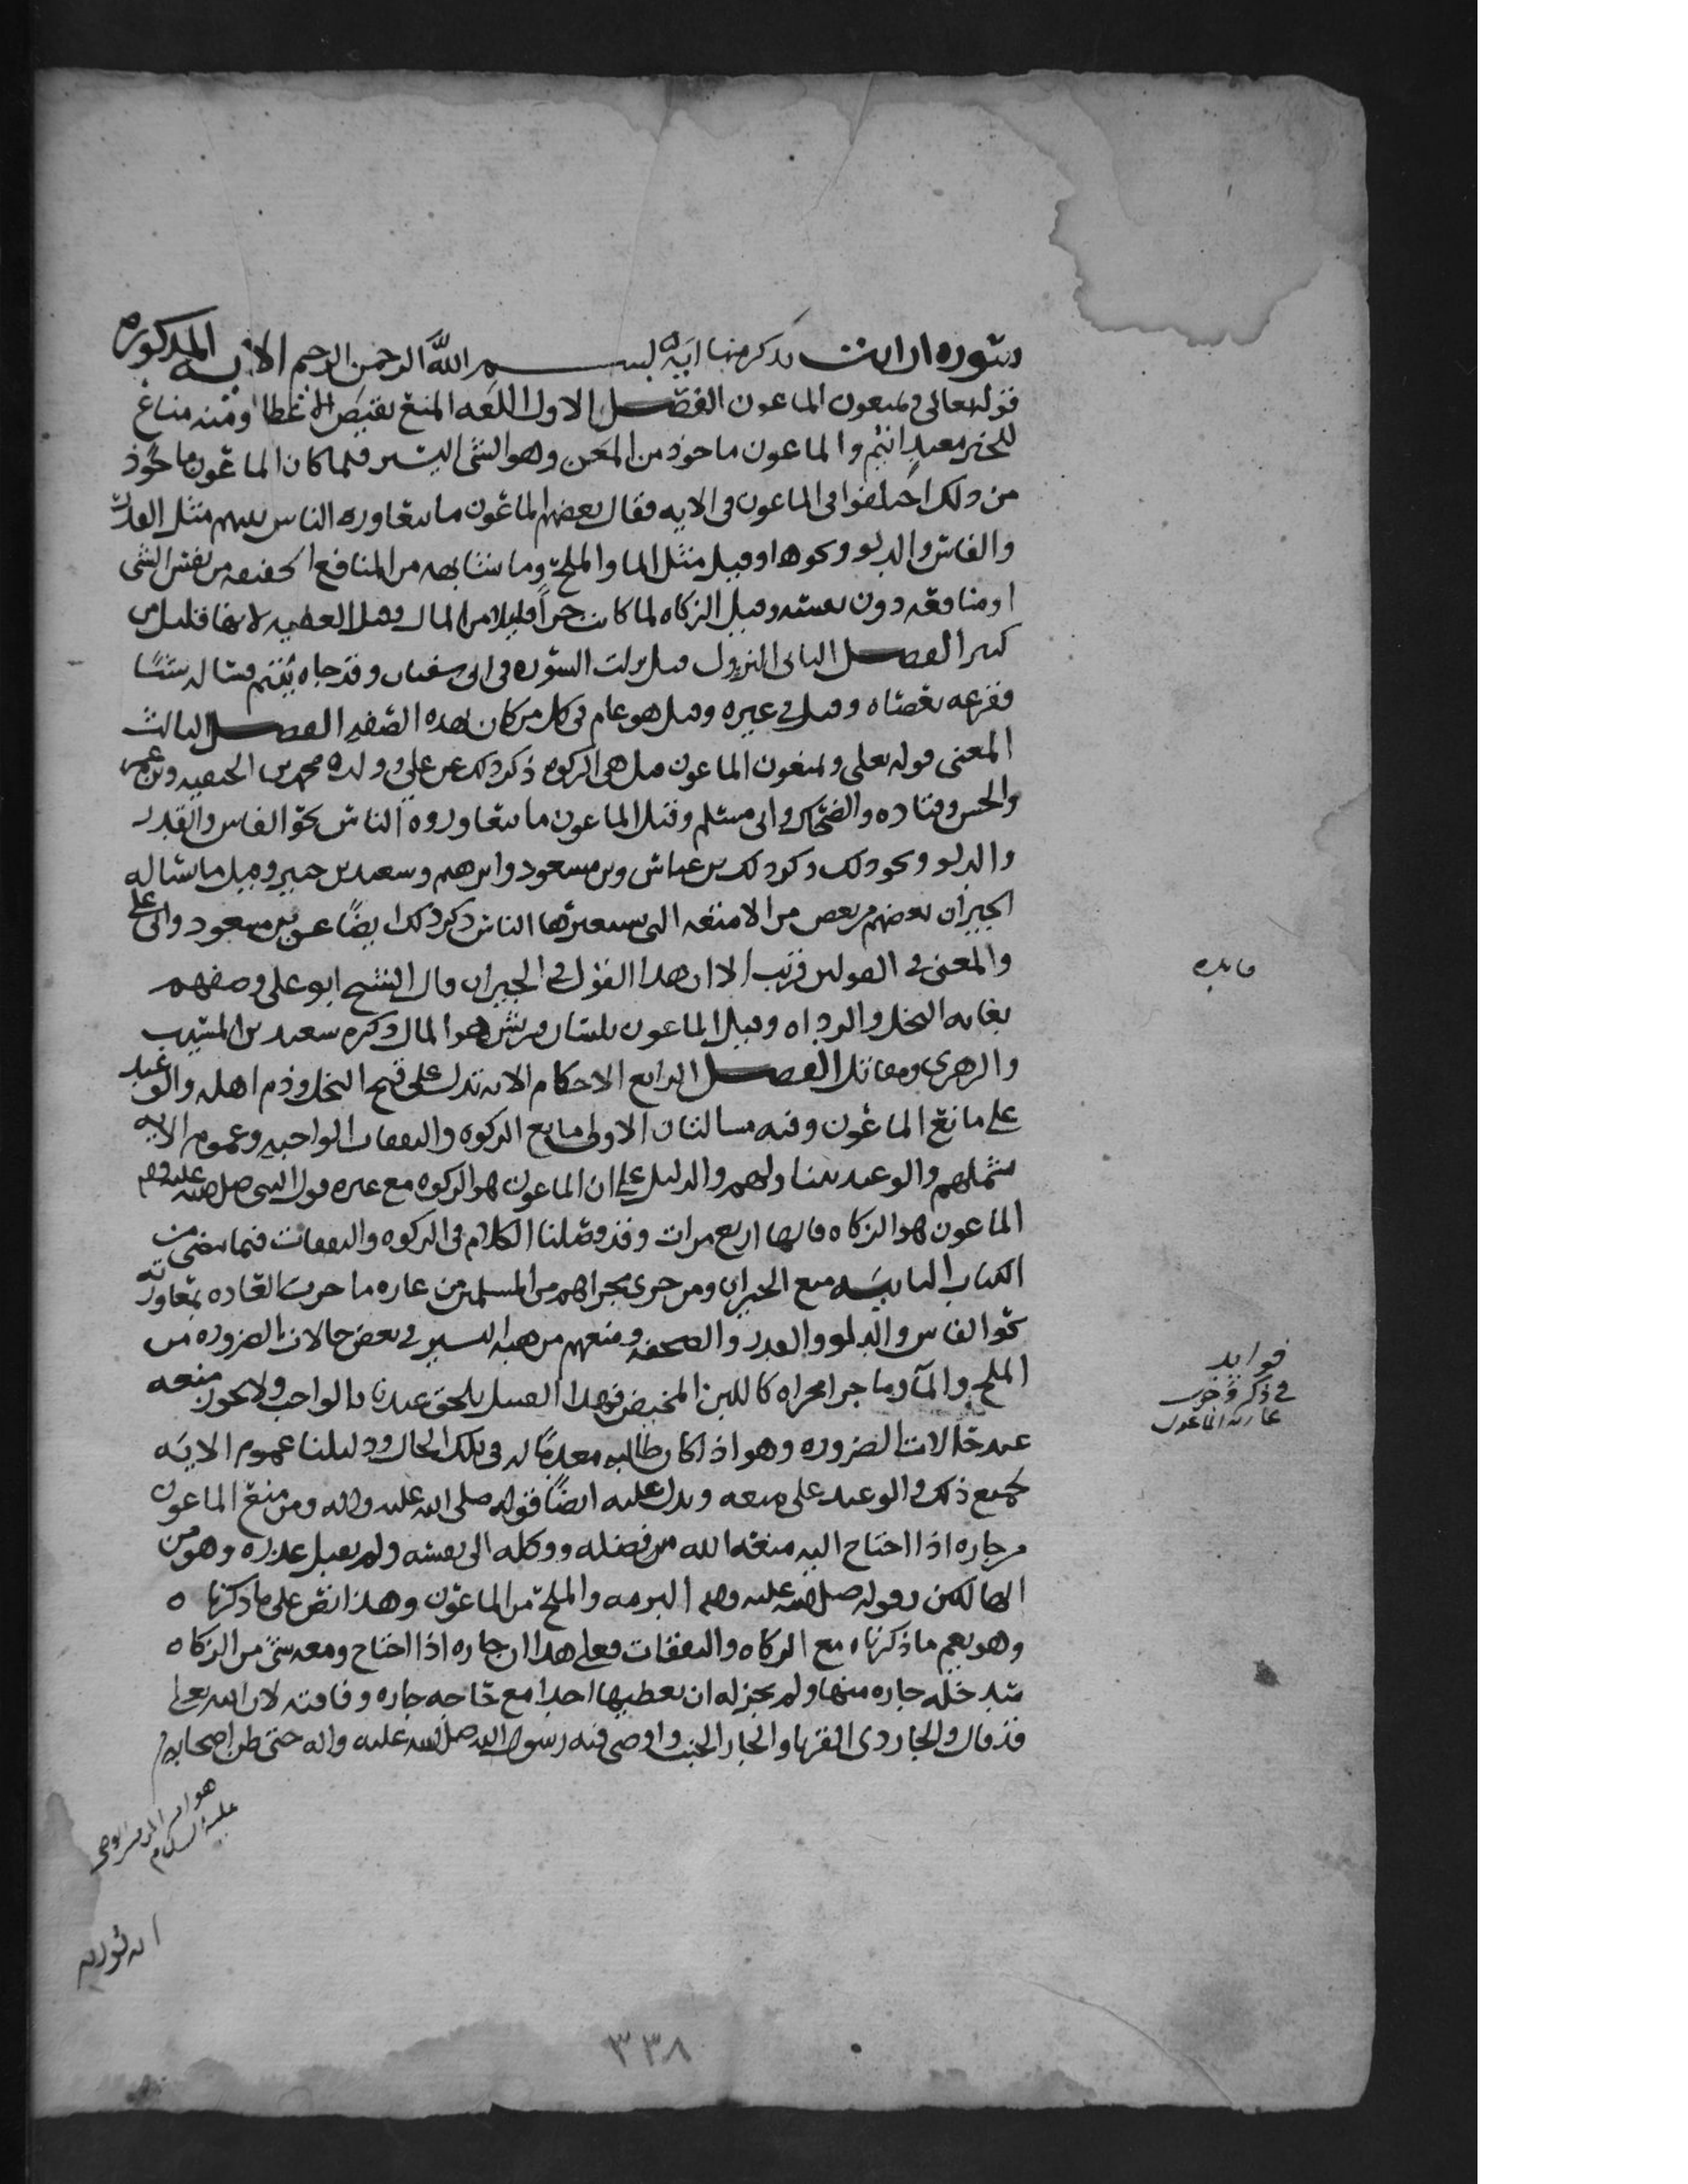 سورة ارايت يذكر منها اية بسم الله الرحمن الرحيم الاية المذكورة
قوله تعالى ويمنعون الماعون الفصل الاول اللغه المنع نقيض الاعطا ومنه مناع
للخير معتد اثيم والماعون ماخوذ من المعن وهو الشي اليسير فلما كان الماعون ماخوذ
من ذلك اختلفوا في الماعون في الايه فقال بعضهم الماعون ما يتعاوره الناس بينهم مثل القدر
والفاس والدلو ونحوها وقيل مثل الما والملح وما شابهه من المنافع الحقيقه من نفس الشي
او منافعه دون نفسه وقيل الزكاه لما كانت جزاً قليلا من المال وقيل العطيه لانها قليل من
كثير الفصل الثاني النزول قيل نزلت السوره في ابي سفيان وقد جاه يتيم فساله شيئا
فقرعه بعصاه وقيل في غيره وقيل هو عام في كل من كان بهذه الصفه الفصل الثالث
المعنى قوله تعلى ويمنعون الماعون قيل هي الزكوه ذكر ذلك عن علي وولده محمد بن الحنفيه وبن عمر
والحسن وقتاده والضحاك وابي مسلم وقيل الماعون ما يتعاوروه الناس نحو الفاس والقدر
والدلو ونحو ذلك ذكر ذلك بن عباس وبن مسعود وابرهيم وسعيد بن جبير وقيل ما يساله
الجيران بعضهم من بعض من الامتعه التي يستعيرها الناس ذكر ذلك ايضاً عن بن مسعود وابي علي
والمعنى في القولين قريب الا ان هذا القول في الجيران قال الشيخ ابو علي وصفهم
بغايه البخل والرداه وقيل الماعون بلسان قريش هو المال ذكره سعيد بن المسيب
والزهري ومقاتل الفصل الرابع الاحكام الايه تدل على قبح البخل وذم اهله والوعيد
على مانع الماعون وفيه مسالتان الاولى مانع الزكوه والنفقات الواجبه وعموم الايه
شملهم والوعيد يتناولهم والدليل على ان الماعون هو الزكوه مع غيره قول النبي صلى الله عليه وسلم
الماعون هو الزكاه قالها اربع مرات وقد فصلنا الكلام في الزكوه والنفقات فيما مضى من
الكتاب الثانيه منع الجيران ومن جرى مجراهم من المسلمين من عاره ما جرت العاده بتعاوره
نحو الفاس والدلو والقدر والصحفه ومنعهم من هبه اليسير في بعض حالات الضروره من
الملح والمآ وما جرا مجراه كاللبن المخيض فهذا القبيل يلحق عندنا بالواجب ولا يجوز منعه
عند حالات الضروره وهو اذا كان طالبه معدمًا له في تلك الحال ودليلنا عموم الايه
لجميع ذلك والوعيد على منعه ويدل عليه ايضاً قوله صلى الله عليه واله ومن منع الماعون
من جاره اذا احتاج اليه منعه الله من فضله ووكله الى نفسه ولم يقبل عذره وهو من
الهالكين وقوله صلى الله عليه وسلم البرمه والملح من الماعون وهذا نص على ما ذكرناه
وهو يعم ما ذكرناه مع الزكاه والنفقات فعلى هذا ان جاره اذا احتاج ومعه شي من الزكاه
جاره منها ولم يجز له ان يعطيها احدا مع حاجه جاره وفاقته لان الله تعلى
قد قال والجار ذي القربا والجار الجنب واوصى فيه رسول الله صلى الله عليه واله حتى ظن اصحابه
فايده
فوايد
في ذكر وجوب
عارية الماعون
عليه السلام
انه يورثه
٣٣٨